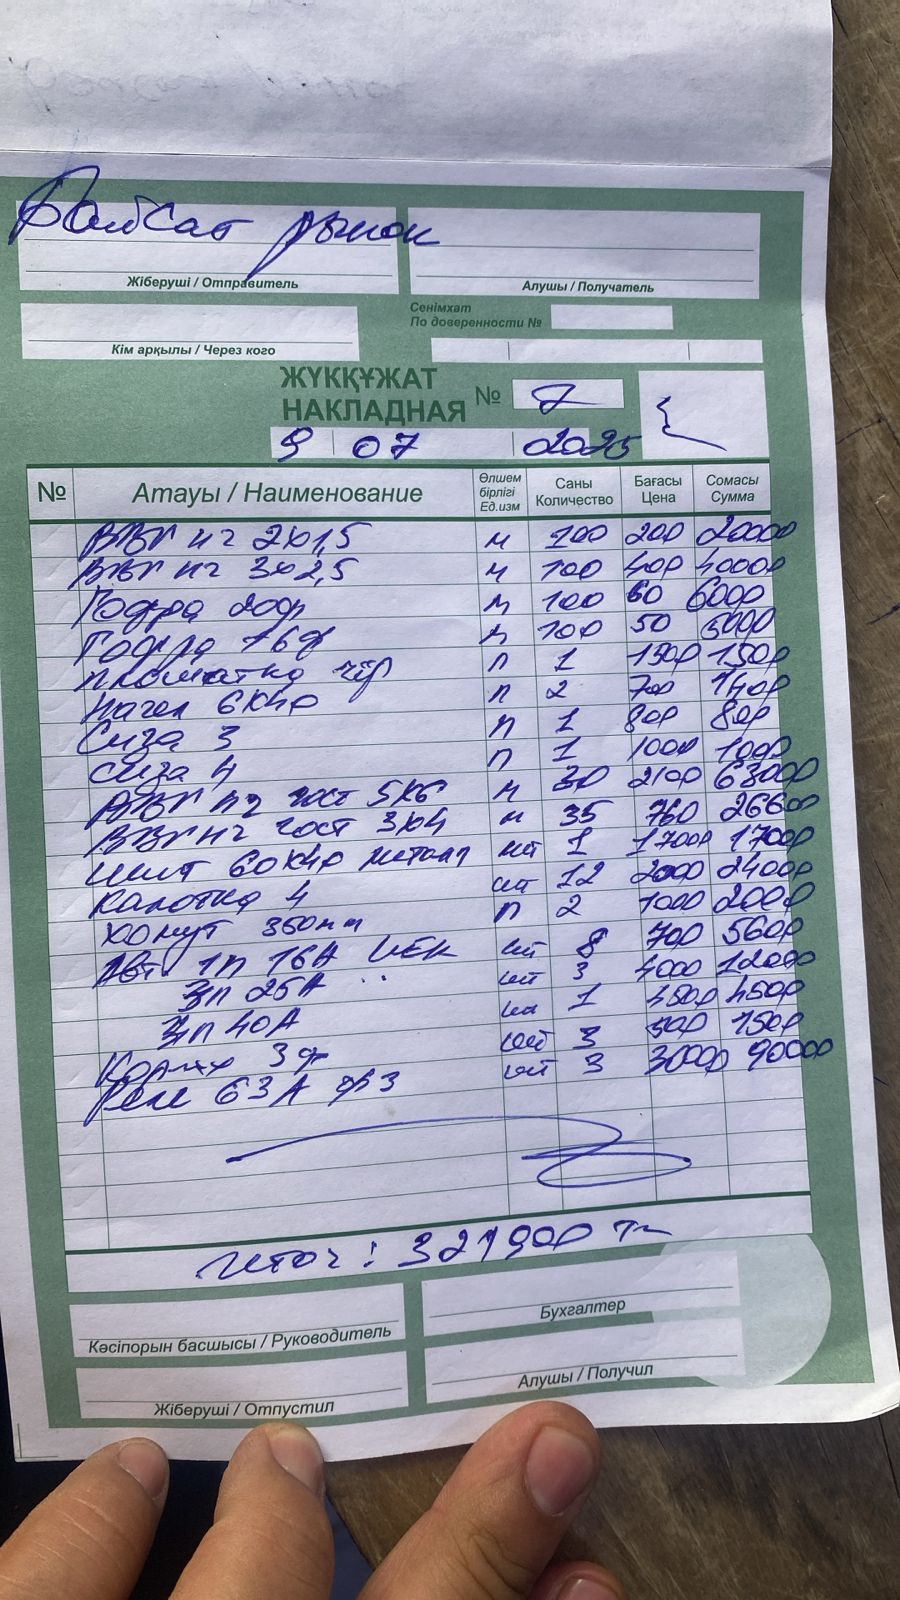 БайСат рынок
Жіберуші / Отправитель
Алушы / Получатель
Сенімхат
По доверенности №
Кім арқылы / Через кого
ЖҮКҚҰЖАТ
НАКЛАДНАЯ № 7
9 07 2025
№ Атауы / Наименование Өлшем бірлігі Ед.изм Саны Количество Бағасы Цена Сомасы Сумма
ВВГ нг 2х1,5 м 100 200 20000
ВВГ нг 3х2,5 м 100 400 40000
Гофра 20ф м 100 60 6000
Гофра 16ф м 100 50 5000
п 1 1500 1500
Нагел 6х40 п 2 700 1400
Сиза 3 п 1 800 800
Сиза 4 п 1 1000 1000
ВВГ нг гост 5х6 м 30 2100 63000
ВВГ нг гост 3х4 м 35 760 26600
щит 60х40 металл шт 1 17000 17000
Калотка 4 шт 12 2000 24000
Хомут 350мм п 2 1000 2000
Авт 1п 16А ИЕК шт 8 700 5600
3п 25А " шт 3 4000 12000
3п 40А шт 1 4500 4500
3ф шт 3 500 1500
Реле 63А ф3 шт 3 30000 90000
Итог: 321900 тг
Кәсіпорын басшысы / Руководитель
Бухгалтер
Жіберуші / Отпустил
Алушы / Получил